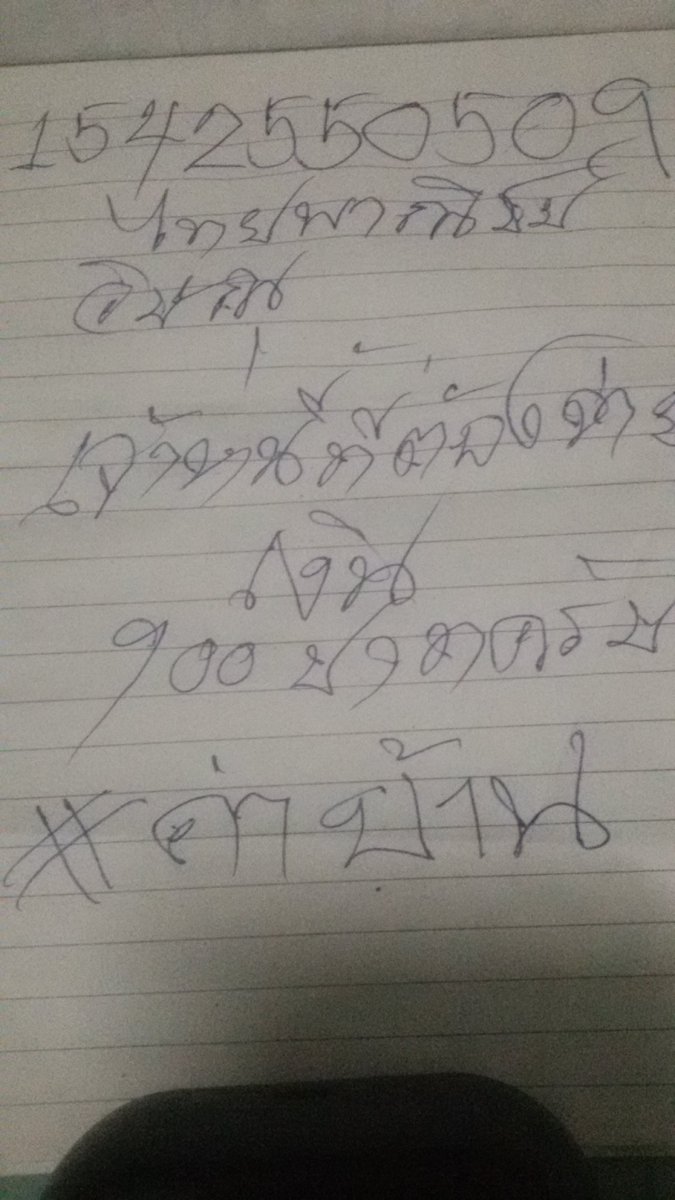 1542550509
ไทยพาณิชย์
เจ้าหนี้ที่ต้องจ่าย
เงิน
900 บาทครับ
#ค่าบ้าน